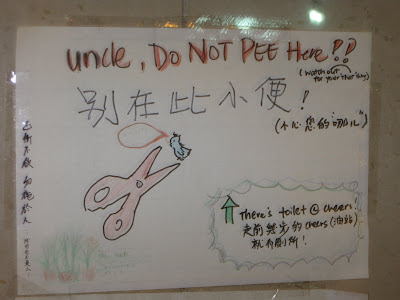 uncle, DO NOT PEE Here!!
(watch out
for your
别在此小便!
(小心您的
己所不欲 勿施於人
There's toilet @ cheers!
走前幾步的 cheers (油站)
就有厠所!